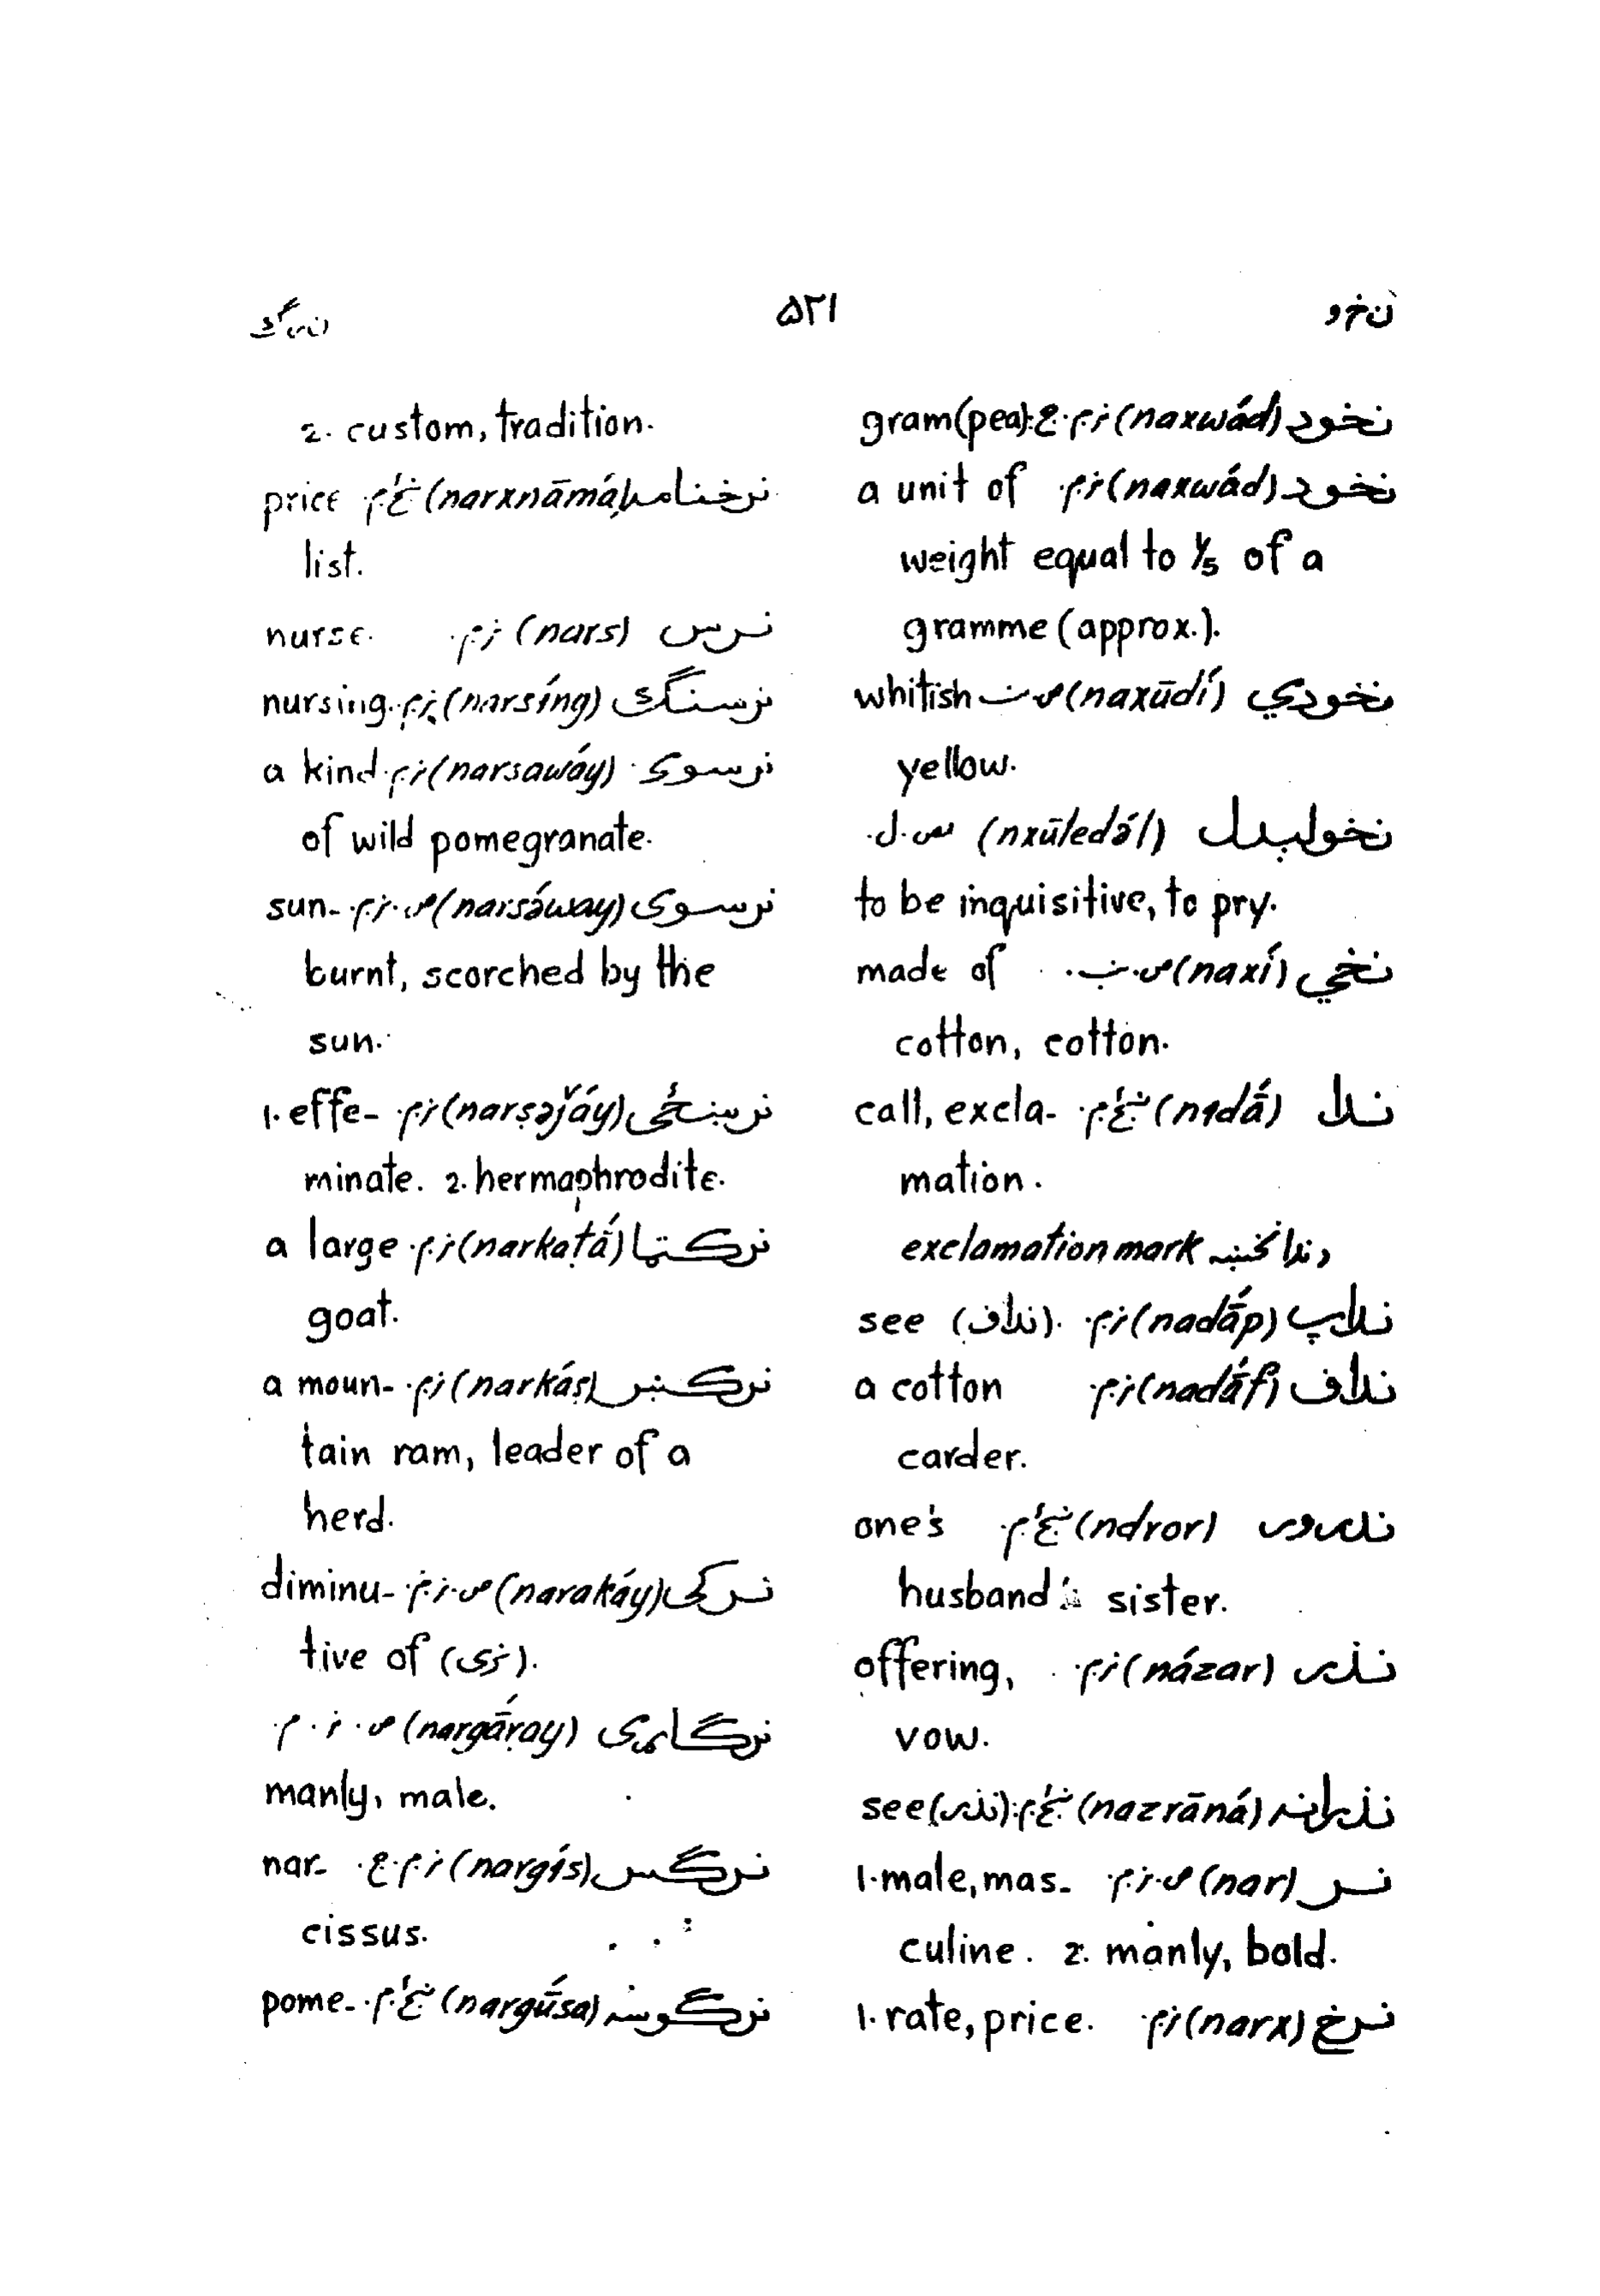 نخو ۵۲۱ نرګ
نخود (naxwád) نر.م.ج. gram(pea).
نخود (naxwád) نر.م. a unit of
weight equal to 1/5 of a
gramme (approx.).
نخودي (naxūdí) ص.ن. whitish
yellow.
نخولېدل (nxūledә́l) س.ل.
to be inquisitive, to pry.
نخي (naxí) ص.ن. made of
cotton, cotton.
ندا (nidā́) ښځ.م. call, excla-
mation.
د ندا نښه exclamation mark
نداپ (nadā́p) نر.م. see (نداف).
نداف (nadā́f) نر.م. a cotton
carder.
ندرور (ndror) ښځ.م. one's
husband's sister.
نذر (názar) نر.م. offering,
vow.
نذرانه (nazrāná) ښځ.م. see (نذر).
نر (nar) ص.نر.م. 1. male, mas-
culine. 2. manly, bold.
نرخ (narx) نر.م. 1. rate, price.
2. custom, tradition.
نرخنامه (narxnāmá) ښځ.م. price
list.
نرس (nars) نر.م. nurse.
نرسنګ (narsíng) نر.م. nursing.
نرسوی (narsawáy) نر.م. a kind
of wild pomegranate.
نرسوی (narsә́way) ص.نر.م. sun-
burnt, scorched by the
sun.
نرښځی (narṣәǰáy) نر.م. 1. effe-
minate. 2. hermaphrodite.
نرکټا (narkaṭā́) نر.م. a large
goat.
نرکښ (narkáṣ) نر.م. a moun-
tain ram, leader of a
herd.
نرکی (narakáy) ص.نر.م. diminu-
tive of (نری).
نرګاړی (nargā́ṛay) ص.نر.م.
manly, male.
نرګس (nargís) نر.م.ج. nar-
cissus.
نرګوسه (nargū́sa) ښځ.م. pome-